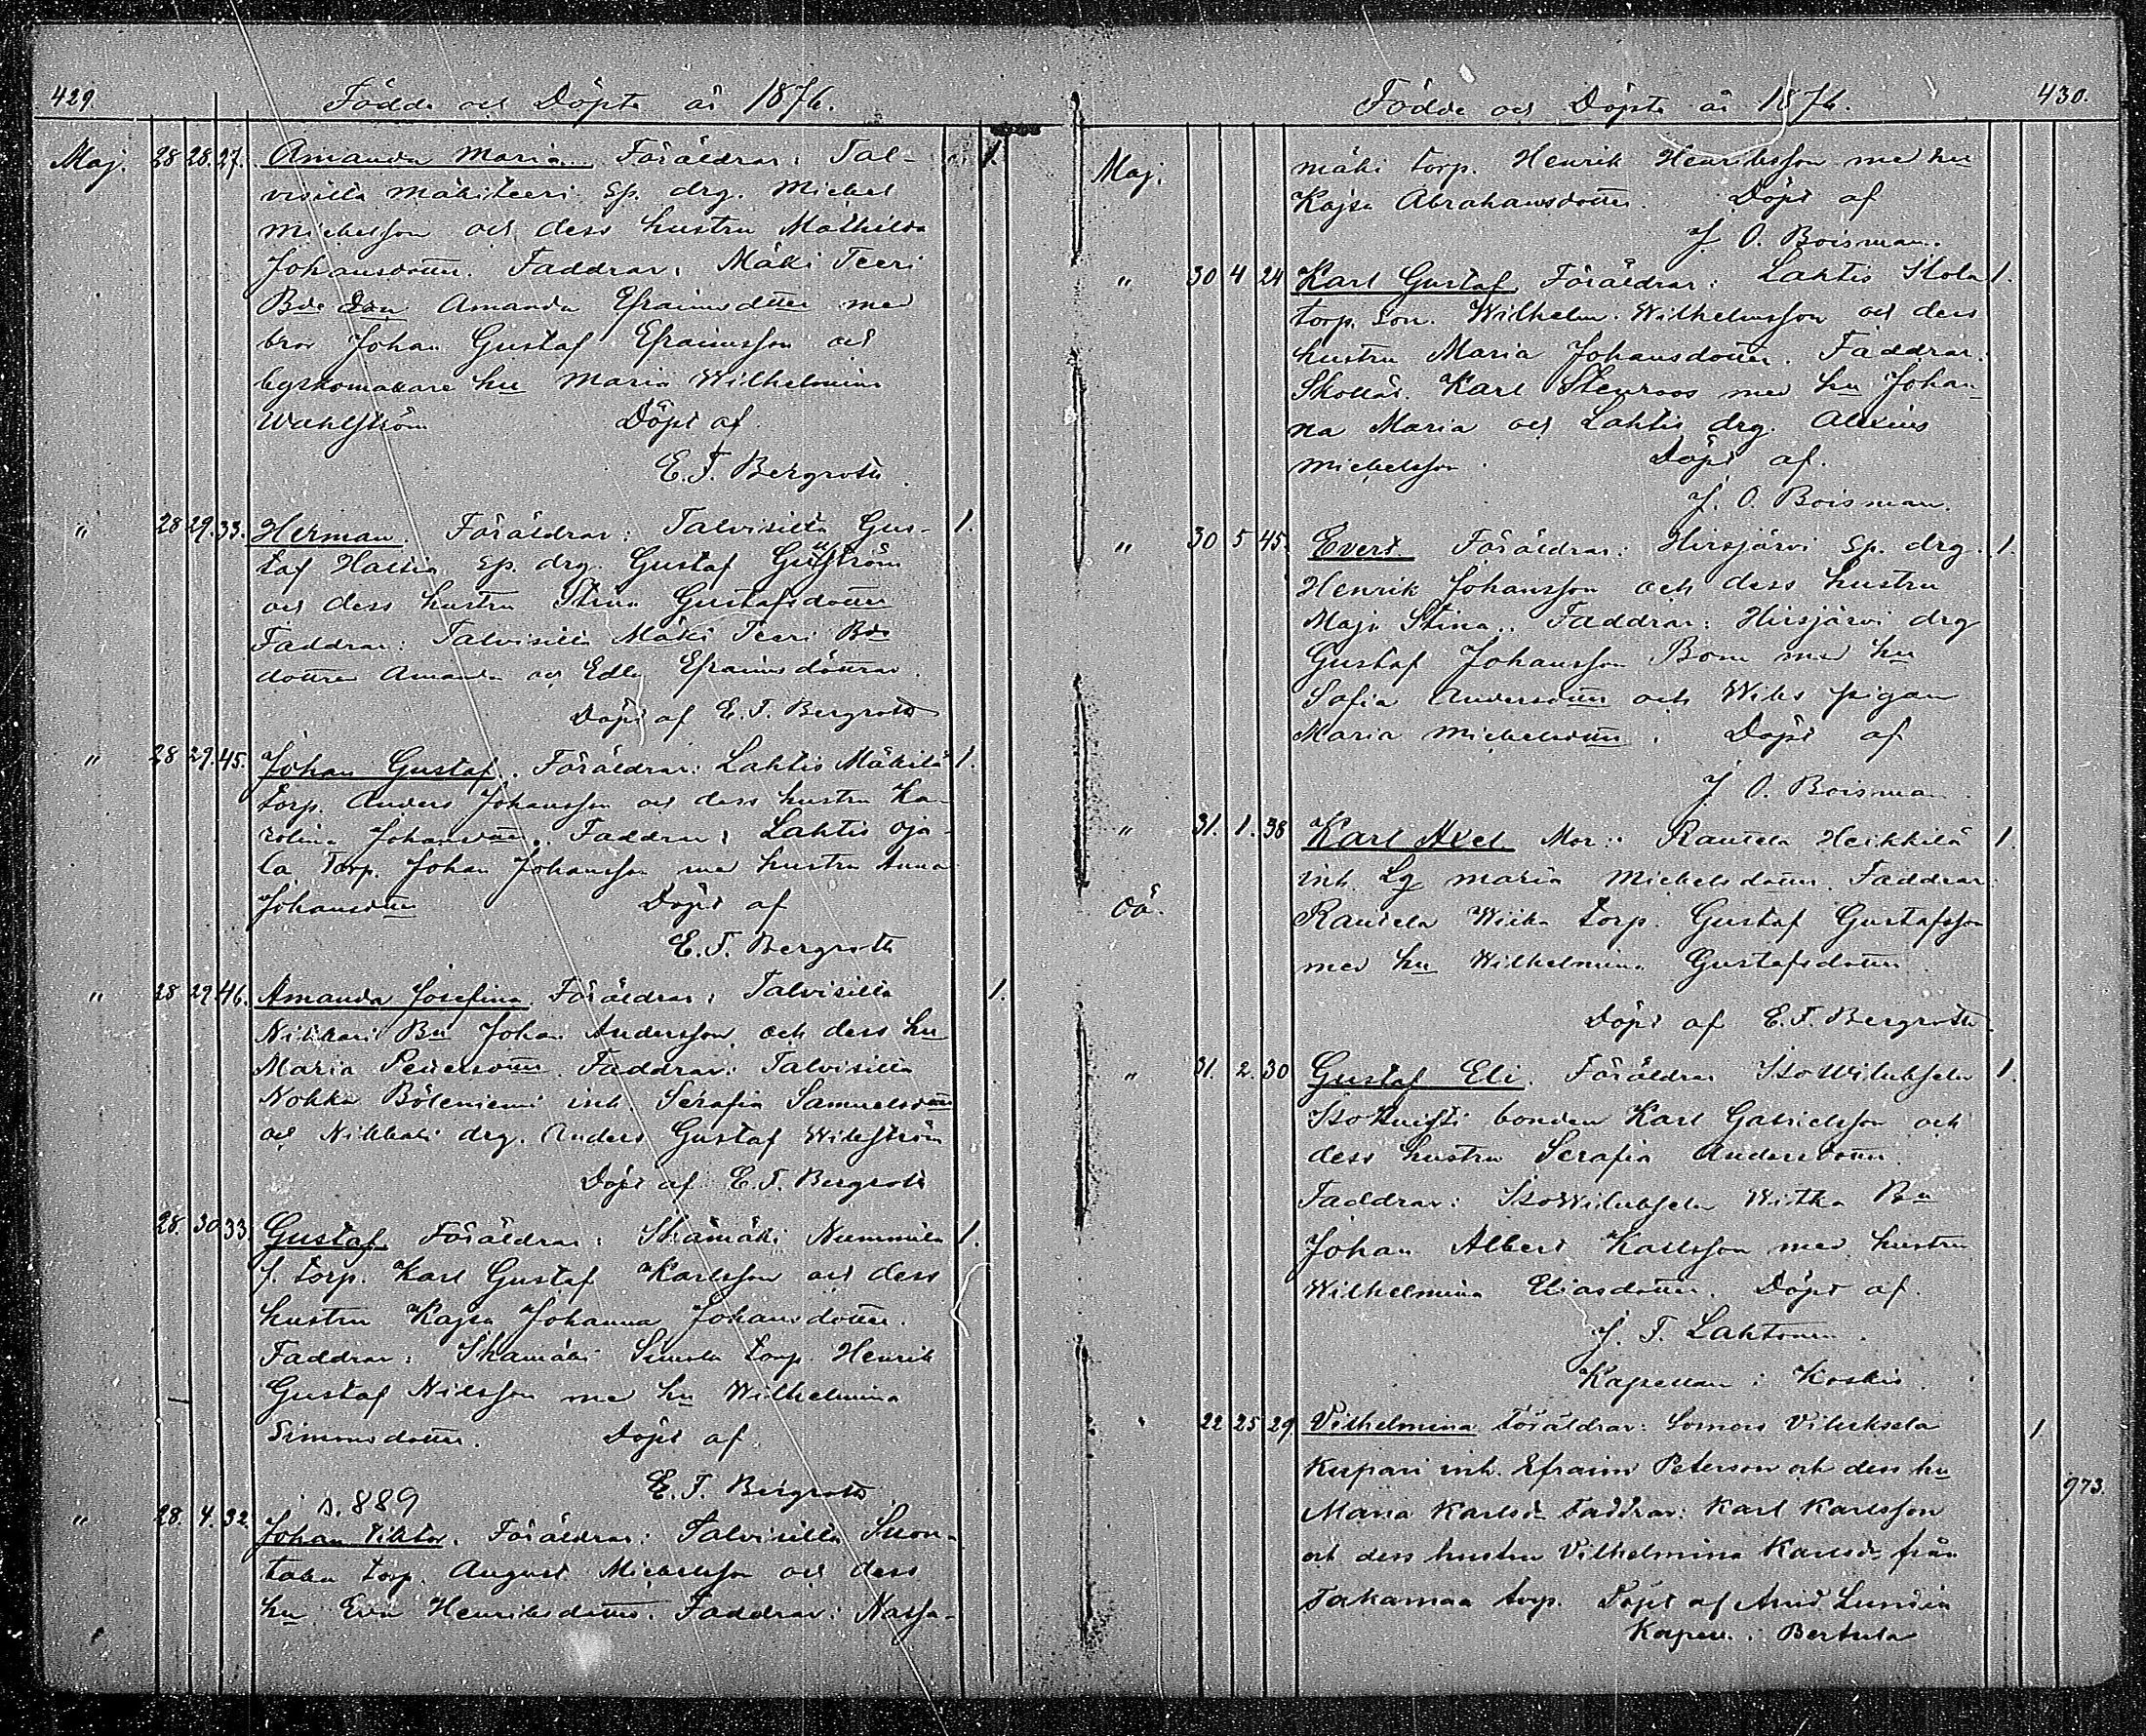 429.
Födde och Döpte år 1876.
Maj. 28 28. 27. Amanda Maria. Föräldrar: Tal- 1.
visilla Mäkiteeri Sp. drg. Michel
Michelsson och dess hustru Mathilda
Johansdotter. Faddrar: Mäki Teeri
Bde Don Amanda Efraimsdotter med
bror Johan Gustaf Efraimsson och
byskomakare hu Maria Wilhelmina
Wahlström Döpt af
E. T. Bergroth.
" 28 29. 33. Herman. Föräldrar: Talvisilla Gus- 1.
taf Sp. drg. Gustaf Gustström
och dess hustru Stina Gustafsdotter
Faddrar: Talvisilla Mäki Teeri Bde
döttrar Amanda och Edla Efraimsdöttrar.
Döpt af E. T. Bergroth
" 28 29. 45. Johan Gustaf. Föräldrar: Lahtis Mäkilä 1.
torp. Anders Johansson och dess hustru Ka-
rolina Johansdotter. Faddrar: Lahtis Oja-
la Torp. Johan Johansson med hustru Anna
Johansdotter Döpt af
E. T. Bergroth
" 28 29. 46. Amanda Josefina. Föräldrar: Talvisilla 1.
Nikkari Bn Johan Andersson och dess hu
Maria Petersdotter. Faddrar: Talvisilla
Nohka Böleniemi inh. Serafia Samuelsdotter
och Nikkari drg. Anders Gustaf Wikström
Döpt af E. T. Bergroth
28. 30. 33. Gustaf. Föräldrar: Skämäki Nummila 1.
f. torp. Karl Gustaf Karlsson och dess
hustru Kajsa Johanna Johansdotter.
Faddrar: Skamäki Simola torp. Henrik
Gustaf Nilsson med hu Wilhelmina
Simonsdotter. Döpt af
E. T. Bergroth
s. 889
" 28. 4. 32. Johan Viktor. Föräldrar: Talvisilla Suon-
taka torp. August Michelsson och dess
hu Eva Henriksdotter. Faddrar: Nassa-
Födde och Döpte år 1876.
430.
Maj. mäki torp. Henrik Henriksson med hu
Kajsa Abrahamsdotter. Döpt af
J. O. Boisman.
" 30 4 24 Karl Gustaf. Föräldrar: Lahtis Skola 1.
torp. Son. Wilhelm Wilhelmsson och dess
hustru Maria Johansdotter. Faddrar.
Skollär. Karl Stenroos med hu Johan-
na Maria och Lahtis drg. Alexius
Michelsson. Döpt af.
J. O. Boisman.
" 30 5 45. Evert Föräldrar: Hirsjärvi Sp. drg. 1.
Henrik Johansson och dess hustru
Maja Stina. Faddrar: Hirsjärvi drg
Gustaf Johansson Bom med hu
Sofia Andersdotter och Wiks pigan
Maria Michelsdotter. Döpt af
J. O. Boisman
" 31. 1. 38 Karl Axel. Mor: Rautela Heikkilä 1.
oä. inh. Lg Maria Michelsdotter. Faddrar:
Rautela Wiika torp. Gustaf Gustafsson
med hu Wilhelmina Gustafsdotter.
Döpt af E. T. Bergroth.
" 31. 2. 30 Gustaf Eli. Föräldrar Isowiluksela 1.
bonden Karl Gabrielsson och
dess hustru Serafia Andersdotter.
Faddrar: Isowiluksela Witka Bn
Johan Albert Karlsson med hustru
Wilhelmina Eliasdotter. Döpt af.
J. T. Lahtonen.
Kapellan i Koskis.
22 25 29. Vilhelmina. Föräldrar: Somero Viluksela 1
Kuspari inh. Efraim Peterson och dess hu
973.
Maria Karlsd. Faddrar: Karl Karlsson
och dess hustru Vilhelmina Karlsd. från
Tahamaa torp. Döpt af Arvid Lundén
Kapell. i Bertula